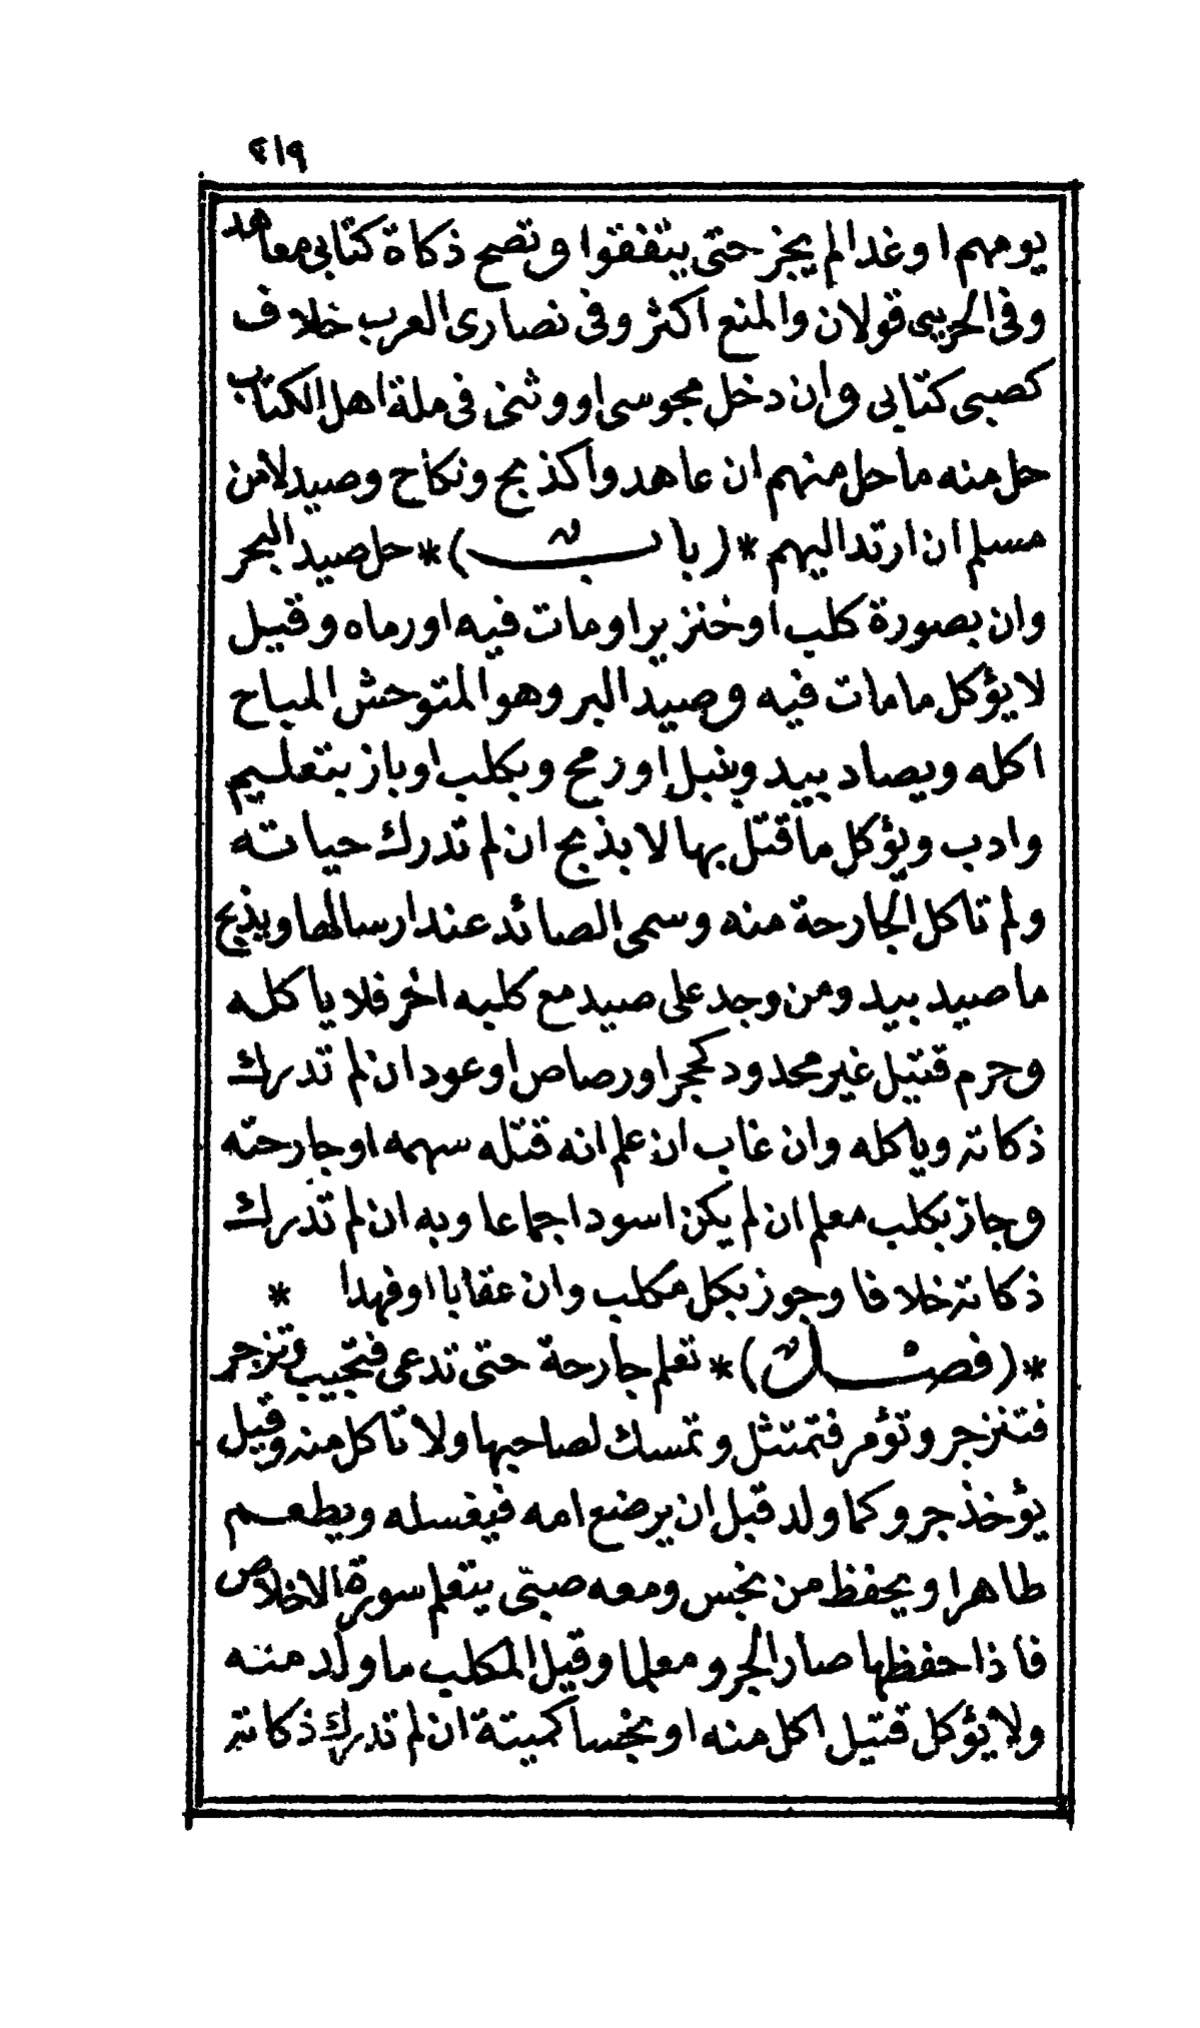 ٤١٩
يومهم او غدا لم يجز حتى يتفقوا وتصح ذكاة كتابى معاهد
وفى الحربى قولان والمنع اكثر وفى نصارى العرب خلاف
كصبى كتابى وان دخل مجوسى او وثنى فى ملة اهل الكتاب
حل منه ما حل منهم ان عاهد واكذبح ونكاح وصيد لا من
مسلم ان ارتد اليهم *(باب)* حل صيد البحر
وان بصورة كلب او خنزير او مات فيه او رماه وقيل
لا يؤكل ما مات فيه وصيد البر وهو المتوحش المباح
اكله ويصاد بيد وبنبل او رمح وبكلب او باز بتعليم
وادب ويؤكل ما قتل بها لا بذبح ان لم تدرك حياته
ولم تاكل الجارحة منه وسمى الصائد عند ارسالها ويذبح
ما صيد بيد ومن وجد على صيد مع كلبه اخر فلا ياكله
وحرم قتيل غير محدود كحجر او رصاص او عود ان لم تدرك
ذكاته وياكله وان غاب ان علم انه قتله سهمه او جارحته
وجاز بكلب معلم ان لم يكن اسود اجماعا وبه ان لم تدرك
ذكاته خلافا وجوز بكل مكلب وان عقابا او فهدا *
*(فصل)* تعلم جارحة حتى تدعى فتجيب وتزجر
فتنزجر وتؤمر فتمتثل وتمسك لصاحبها ولا تاكل منه وقيل
يؤخذ جرو كما ولد قبل ان يرضع امه فيغسله ويطعم
طاهرا ويحفظ من نجس ومعه صبى يتعلم سورة الاخلاص
فاذا حفظها صار الجرو معلما وقيل المكلب ما ولد منه
ولا يؤكل قتيل اكل منه او نجسا كميتة ان لم تدرك ذكاته